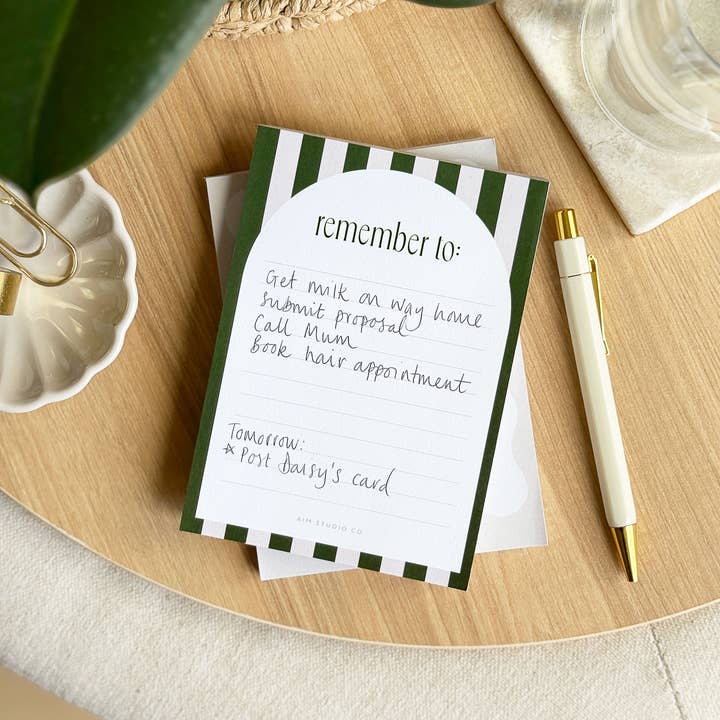 remember to:
Get milk on way home
Submit proposal
Call Mum
Book hair appointment
Tomorrow:
☆ Post Daisy's card
AIM STUDIO CO